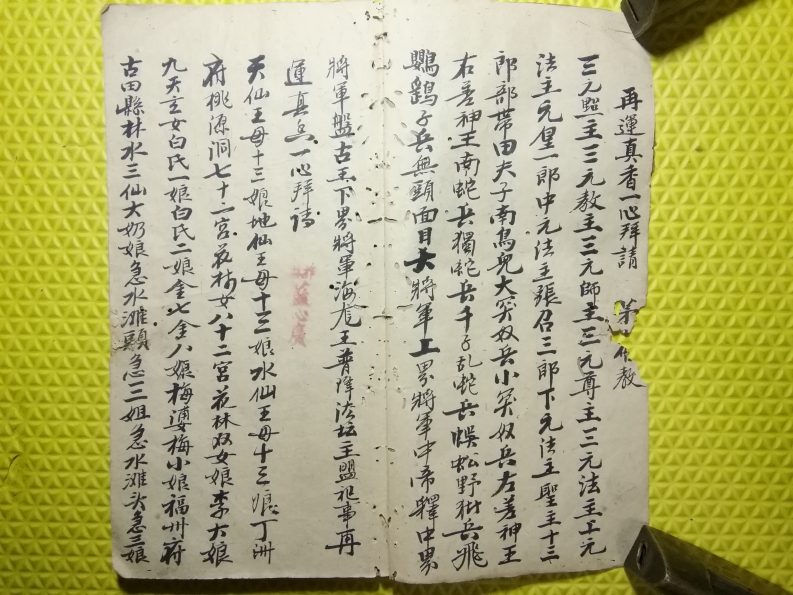 再運真香一心拜請
三元照主三元教主三元師主三元尊主三元法主上元
法主元皇一郎中元法主張召三郎下元法主聖主十三
郎部帶田夫子南鳥兒大突奴兵小突奴兵左差神王
右差神王南蛇兵獨蛇兵千子乱蛇兵蜈蚣野兵飛
鸚鵡子兵無頭面目大將軍上界將軍中帝釋中界
將軍盤古王下界將軍海龙王普降法坛主盟祀事再
運真兵一心拜請
天仙王母十三娘地仙王母十三娘水仙王母十三娘丁洲
府桃源洞七十二宮花林女八十二宮花林双女娘李大娘
九天玄女白氏一娘白氏二娘金七金八娘梅婆梅小娘福州府
古田縣林水三仙大奶娘急水滩頭急三姐急水滩头急三娘